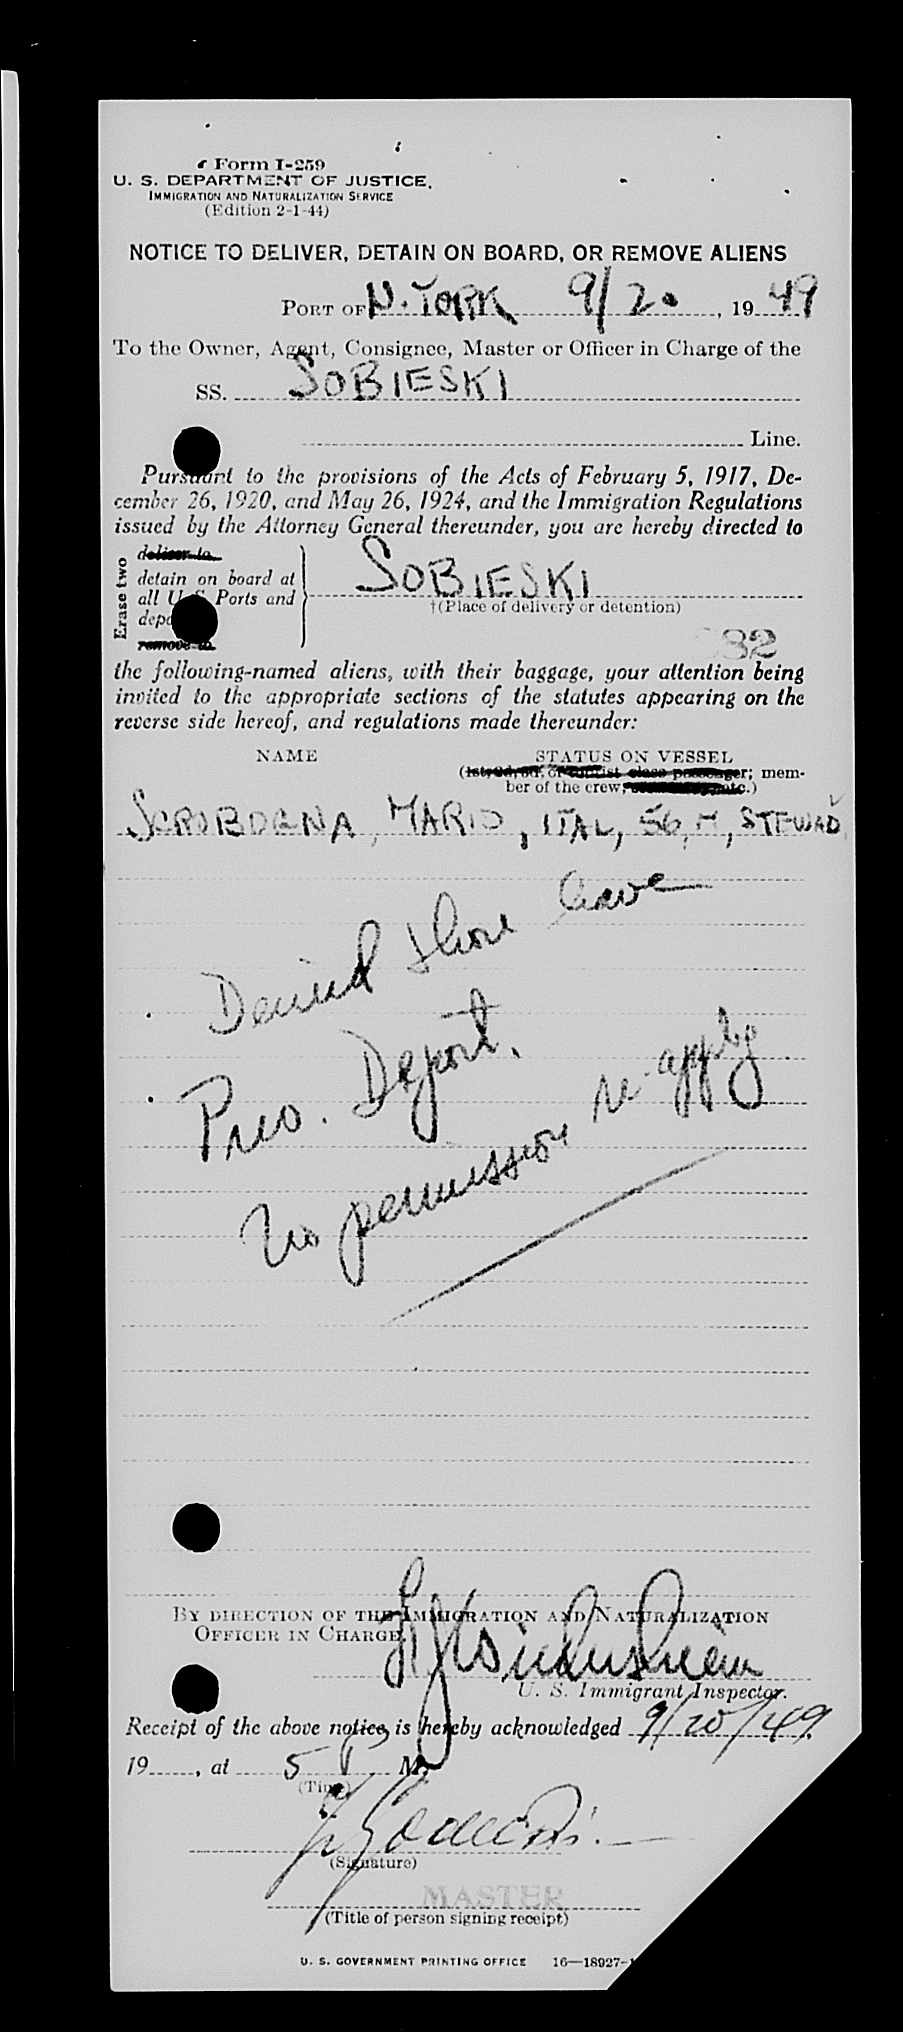 Form I-259
U. S. DEPARTMENT OF JUSTICE,
IMMIGRATION AND NATURALIZATION SERVICE
(Edition 2-1-44)
NOTICE TO DELIVER, DETAIN ON BOARD, OR REMOVE ALIENS
PORT OF N. YORK 9/20, 1949
To the Owner, Agent, Consignee, Master or Officer in Charge of the
SS. SOBIESKI
Line.
Pursuant to the provisions of the Acts of February 5, 1917, De-
cember 26, 1920, and May 26, 1924, and the Immigration Regulations
issued by the Attorney General thereunder, you are hereby directed to
Erase two
deliver to
detain on board at
all U. S. Ports and
remove to
SOBIESKI
†(Place of delivery or detention)
82
the following-named aliens, with their baggage, your attention being
invited to the appropriate sections of the statutes appearing on the
reverse side hereof, and regulations made thereunder:
NAME STATUS ON VESSEL
(1st, 2d, 3d, or tourist class passenger; mem-
ber of the crew, etc.)
SCROBOGNA, MARIO, ITAL, 56, M, STEWAD
Denied shore leave
Prev. Deport.
No permission re-apply
BY DIRECTION OF THE IMMIGRATION AND NATURALIZATION
OFFICER IN CHARGE
U. S. Immigrant Inspector.
Receipt of the above notice is hereby acknowledged 9/20/49
19, at 5 P M.
(Time)
(Signature)
MASTER
(Title of person signing receipt)
U. S. GOVERNMENT PRINTING OFFICE 16—18927-1